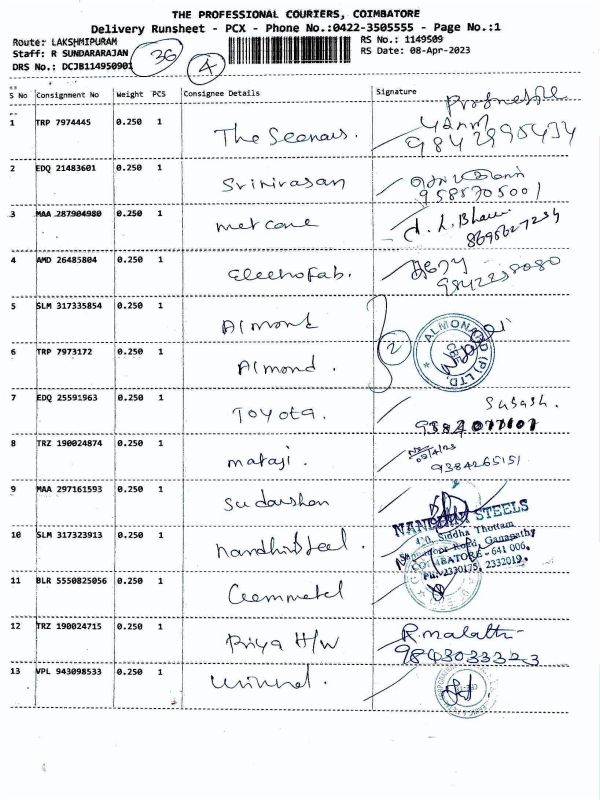 THE PROFESSIONAL COURIERS, COIMBATORE
Delivery Runsheet - PCX - Phone No.:0422-3505555 - Page No.:1
Route: LAKSHMIPURAM
RS No.: 1149509
Staff: R SUNDARARAJAN
RS Date: 08-Apr-2023
DRS No.: DCJB114950901
36
4
S No Consignment No Weight PCS Consignee Details Signature
1 TRP 7974445 0.250 1 The
2 EDQ 21483601 0.250 1 Srinivasan
9585705001
3 MAA 287904980 0.250 1
4 AMD 26485804 0.250 1 Electrofab.
5 SLM 317335854 0.250 1 Almond
2
6 TRP 7973172 0.250 1 Almond.
7 EDQ 25591963 0.250 1 Toyota.
8 TRZ 190024874 0.250 1 mataji.
9384265151
9 MAA 297161593 0.250 1 Sudarshan
10 SLM 317323913 0.250 1 nandhi Steel.
NANDHINI STEELS
Siddha Thottam
Road, Ganapathy
COIMBATORE - 641 006.
Ph: 2330175, 2332019.
11 BLR 5550825056 0.250 1
12 TRZ 190024715 0.250 1 Priya H/W
R. malathi
9843033323
13 VPL 943098533 0.250 1